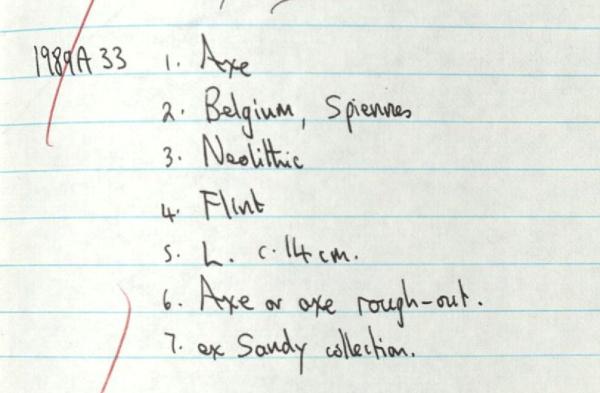 1989A 33 1. Axe
2. Belgium, Spiennes
3. Neolithic
4. Flint
5. L. c. 14 cm.
6. Axe or axe rough-out.
7. ex Sandy collection.